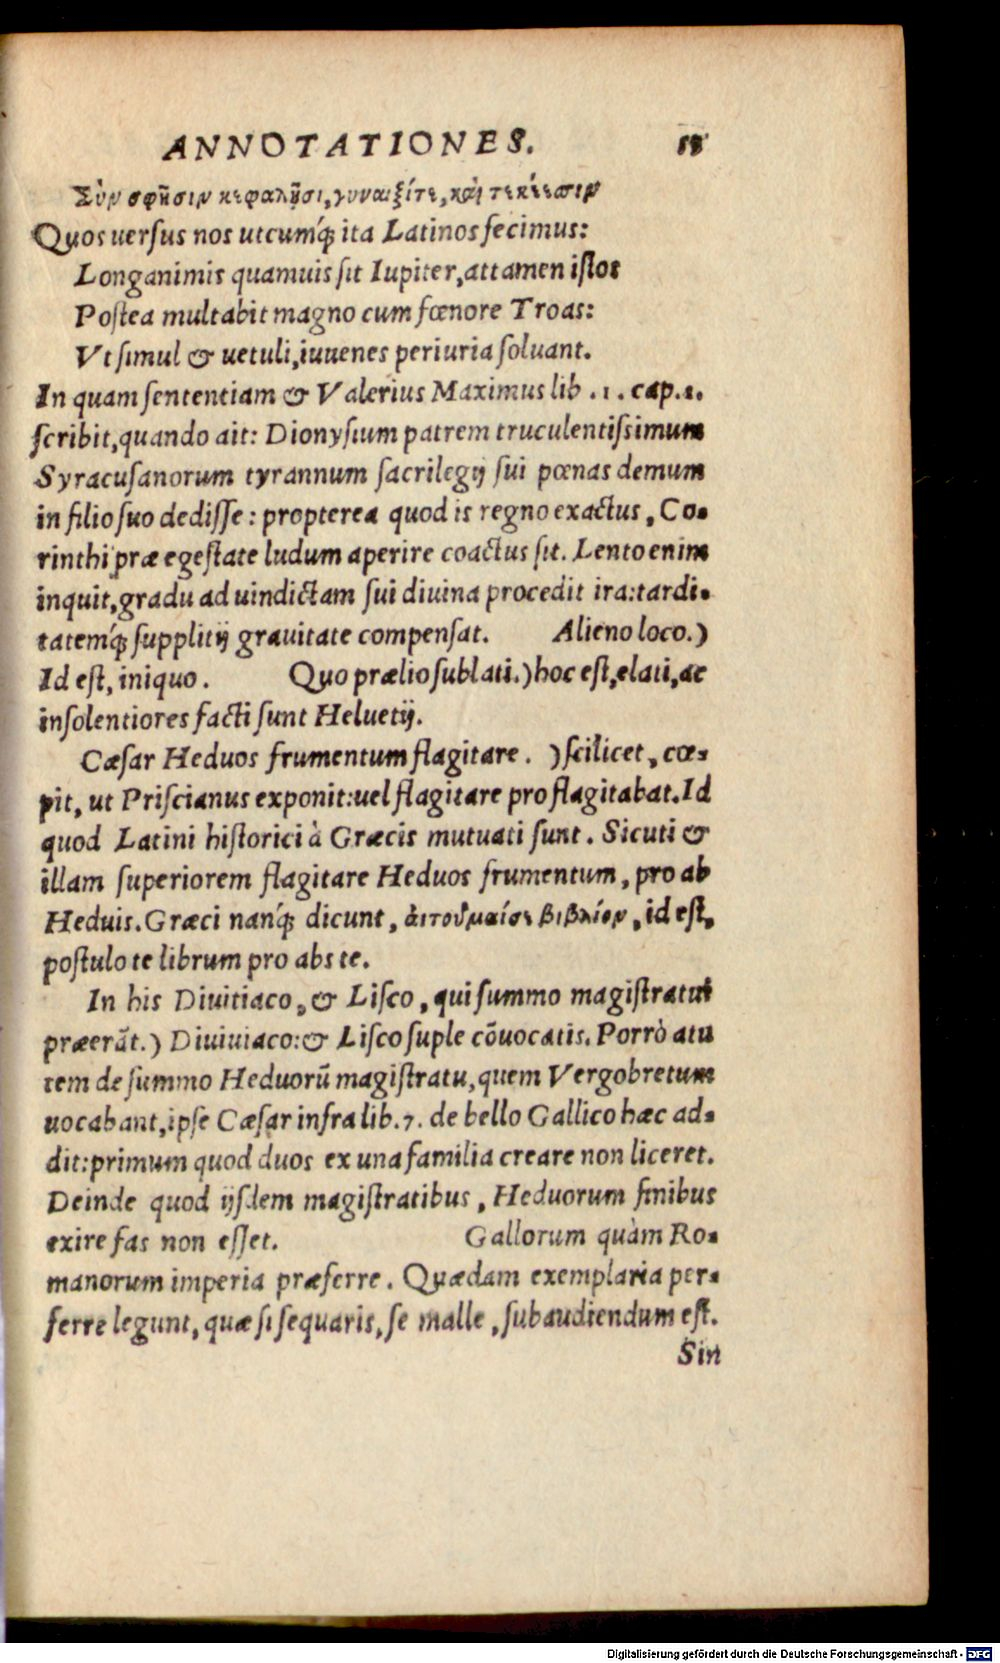 ANNOTATIONES. 18
Σὺν σφῆσιν κεφαλῇσι, γυναιξίτε, καὶ τεκέεσσιν
Quos uersus nos utcumq́; ita Latinos fecimus:
Longanimis quamuis sit Iupiter, attamen istos
Postea multabit magno cum fœnore Troas:
Vt simul & uetuli, iuuenes periuria soluant.
In quam sententiam & Valerius Maximus lib .1. cap.1.
scribit, quando ait: Dionysium patrem truculentissimum
Syracusanorum tyrannum sacrilegij sui pœnas demum
in filio suo dedisse: propterea quod is regno exactus, Co-
rinthi præ egestate ludum aperire coactus sit. Lento enim
inquit, gradu ad uindictam sui diuina procedit ira: tardi-
tatemq́; supplitij grauitate compensat. Alieno loco.)
Id est, iniquo. Quo prælio sublati.) hoc est, elati, ac
insolentiores facti sunt Heluetij.
Cæsar Heduos frumentum flagitare. ) scilicet, cœ-
pit, ut Priscianus exponit: uel flagitare pro flagitabat. Id
quod Latini historici à Græcis mutuati sunt. Sicuti &
illam superiorem flagitare Heduos frumentum, pro ab
Heduis. Græci nanq́; dicunt, ἀιτοῦμαίσε βιβλίον, id est,
postulo te librum pro abs te.
In his Diuitiaco, & Lisco, qui summo magistratui
præerãt.) Diuiuiaco: & Lisco suple cõuocatis. Porrò atu
tem de summo Heduorũ magistratu, quem Vergobretum
uocabant, ipse Cæsar infra lib.7. de bello Gallico hæc ad-
dit: primum quod duos ex una familia creare non liceret.
Deinde quod ijsdem magistratibus, Heduorum finibus
exire fas non esset. Gallorum quàm Ro-
manorum imperia præferre. Quædam exemplaria per-
ferre legunt, quæ si sequaris, se malle, subaudiendum est.
Sin
Digitalisierung gefördert durch die Deutsche Forschungsgemeinschaft - DFG